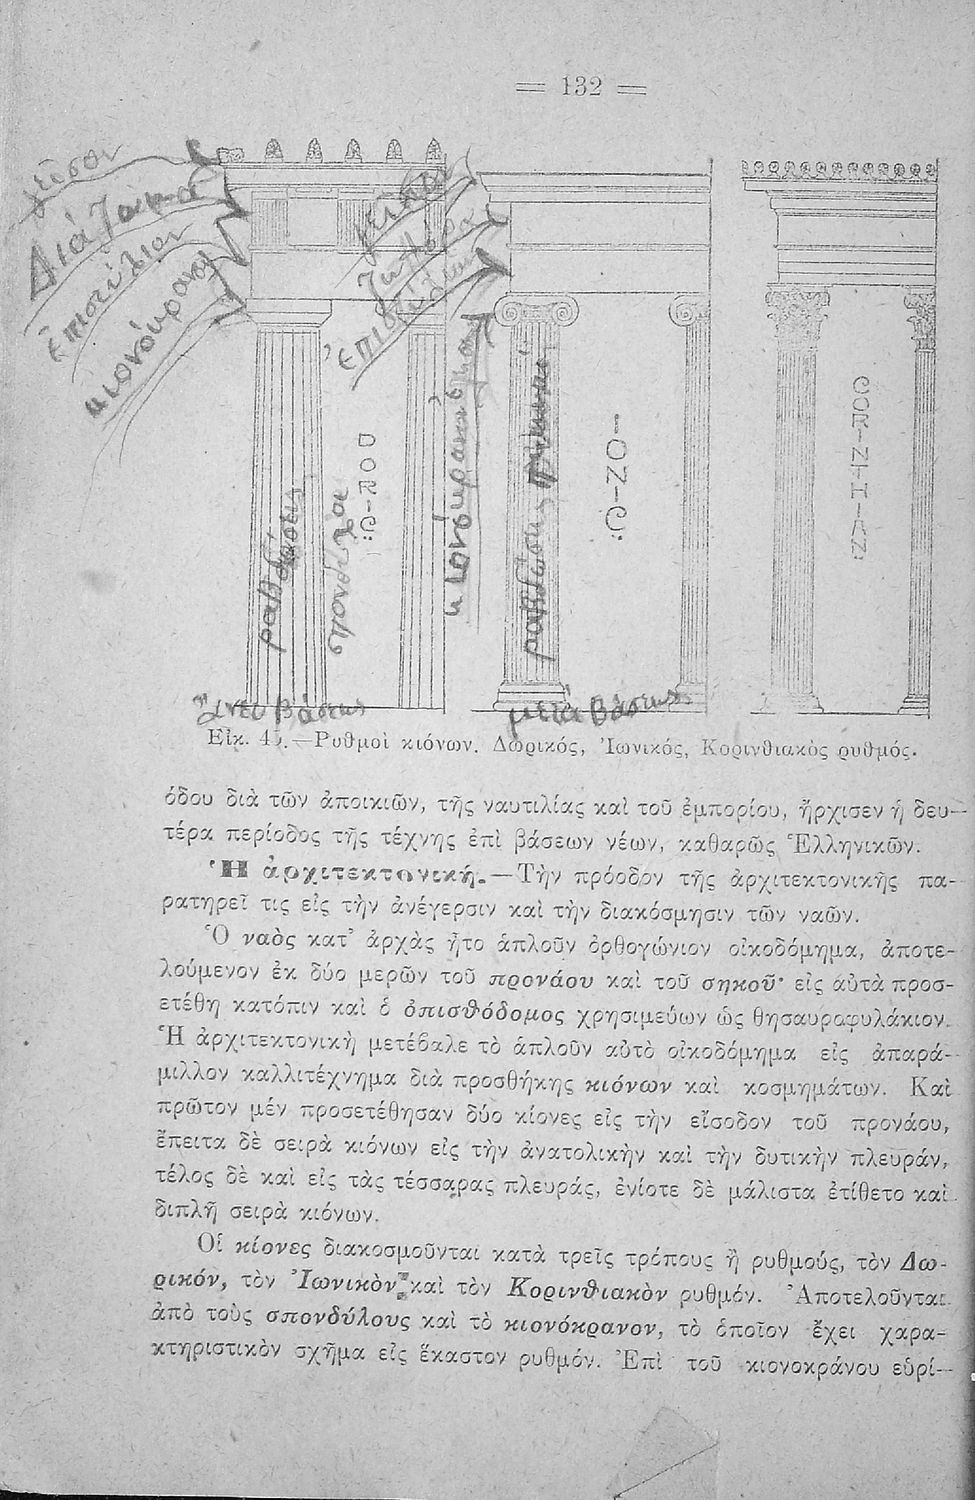 132
γεῖσον
Διάζωμα
ἐπιστύλιον
κιονόκρανον
γεῖσον
ζωφόρος
ἐπιστύλιον
κιονόκρανον
ραβδώσεις
σπονδύλοι
ραβδώσεις
DORIC:
IONIC:
CORINTHIAN:
ἄνευ βάσεως
μετὰ βάσεως
Εἰκ. 45.—Ρυθμοὶ κιόνων. Δωρικός, Ἰωνικός, Κορινθιακὸς ρυθμός.
όδου διὰ τῶν ἀποικιῶν, τῆς ναυτιλίας καὶ τοῦ ἐμπορίου, ἤρχισεν ἡ δευ-
τέρα περίοδος τῆς τέχνης ἐπὶ βάσεων νέων, καθαρῶς Ἑλληνικῶν.
Ἡ ἀρχιτεκτονική.—Τὴν πρόοδον τῆς ἀρχιτεκτονικῆς πα-
ρατηρεῖ τις εἰς τὴν ἀνέγερσιν καὶ τὴν διακόσμησιν τῶν ναῶν.
Ὁ ναὸς κατ' ἀρχὰς ἦτο ἁπλοῦν ὀρθογώνιον οἰκοδόμημα, ἀποτε-
λούμενον ἐκ δύο μερῶν τοῦ προνάου καὶ τοῦ σηκοῦ· εἰς αὐτὰ προσ-
ετέθη κατόπιν καὶ ὁ ὀπισθόδομος χρησιμεύων ὡς θησαυροφυλάκιον.
Ἡ ἀρχιτεκτονικὴ μετέβαλε τὸ ἁπλοῦν αὐτὸ οἰκοδόμημα εἰς ἀπαρά-
μιλλον καλλιτέχνημα διὰ προσθήκης κιόνων καὶ κοσμημάτων. Καὶ
πρῶτον μέν προσετέθησαν δύο κίονες εἰς τὴν εἴσοδον τοῦ προνάου,
ἔπειτα δὲ σειρὰ κιόνων εἰς τὴν ἀνατολικὴν καὶ τὴν δυτικὴν πλευράν,
τέλος δὲ καὶ εἰς τὰς τέσσαρας πλευράς, ἐνίοτε δὲ μάλιστα ἐτίθετο καὶ
διπλῆ σειρὰ κιόνων.
Οἱ κίονες διακοσμοῦνται κατὰ τρεῖς τρόπους ἢ ρυθμούς, τὸν Δω-
ρικόν, τὸν Ἰωνικὸν καὶ τὸν Κορινθιακὸν ρυθμόν. Ἀποτελοῦνται
ἀπὸ τοὺς σπονδύλους καὶ τὸ κιονόκρανον, τὸ ὁποῖον ἔχει χαρα-
κτηριστικὸν σχῆμα εἰς ἕκαστον ρυθμόν. Ἐπὶ τοῦ κιονοκράνου εὑρί-